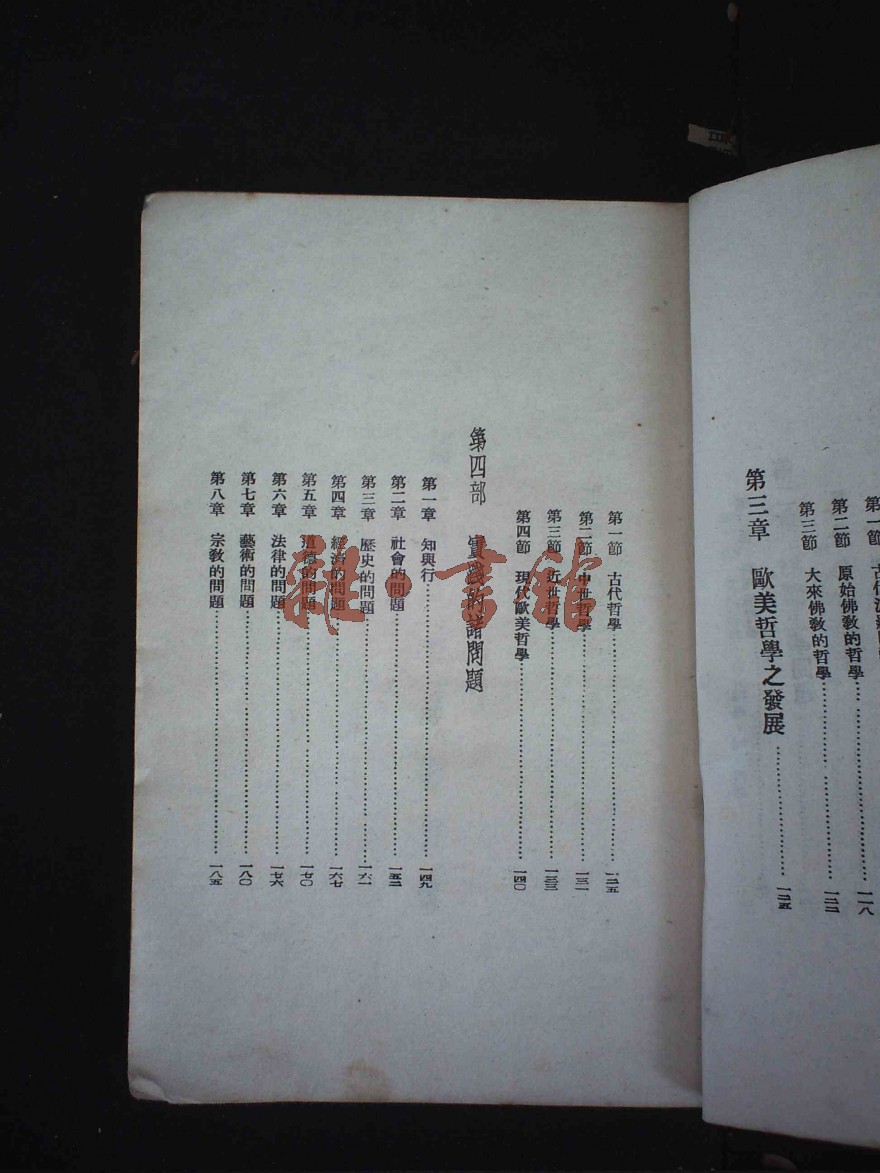 第一節 古代
第二節 原始佛敎的哲學……一一八
第三節 大來佛敎的哲學……一二二
第三章 歐美哲學之發展……一二五
第一節 古代哲學……一二五
第二節 中世哲學……一三一
第三節 近世哲學……一三三
第四節 現代歐美哲學……一四〇
第四部 實踐的諸問題
第一章 知與行……一四九
第二章 社會的問題……一五二
第三章 歷史的問題……一六一
第四章 經濟的問題……一六七
第五章 道德的問題……一七〇
第六章 法律的問題……一七六
第七章 藝術的問題……一八〇
第八章 宗敎的問題……一八五
雜·書館